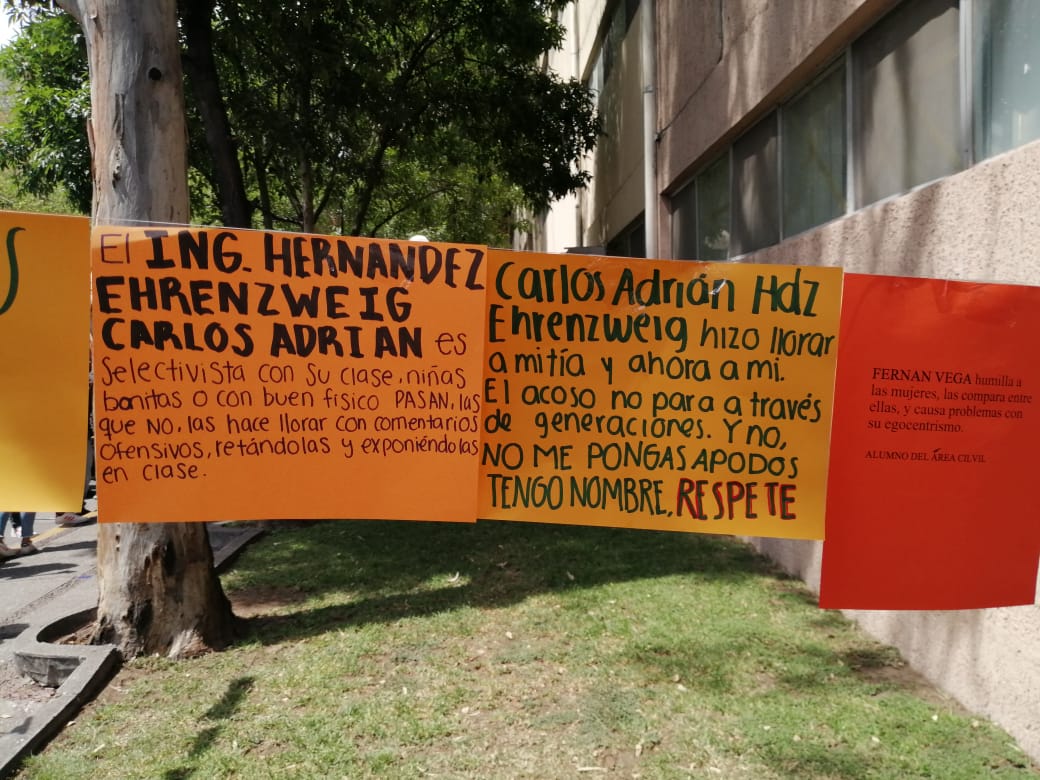 S
El ING. HERNANDEZ
EHRENZWEIG
CARLOS ADRIAN es
Selectivista con su clase, niñas
bonitas o con buen fisico PASAN, las
que NO, las hace llorar con comentarios
ofensivos, retándolas y exponiéndolas
en clase.
Carlos Adrián Hdz
Ehrenzweig hizo llorar
a mi tía y ahora a mi.
El acoso no para a través
de generaciones. Y no,
NO ME PONGAS APODOS
TENGO NOMBRE, RESPETE
FERNAN VEGA humilla a
las mujeres, las compara entre
ellas, y causa problemas con
su egocentrismo.
ALUMNO DEL ÁREA CILVIL